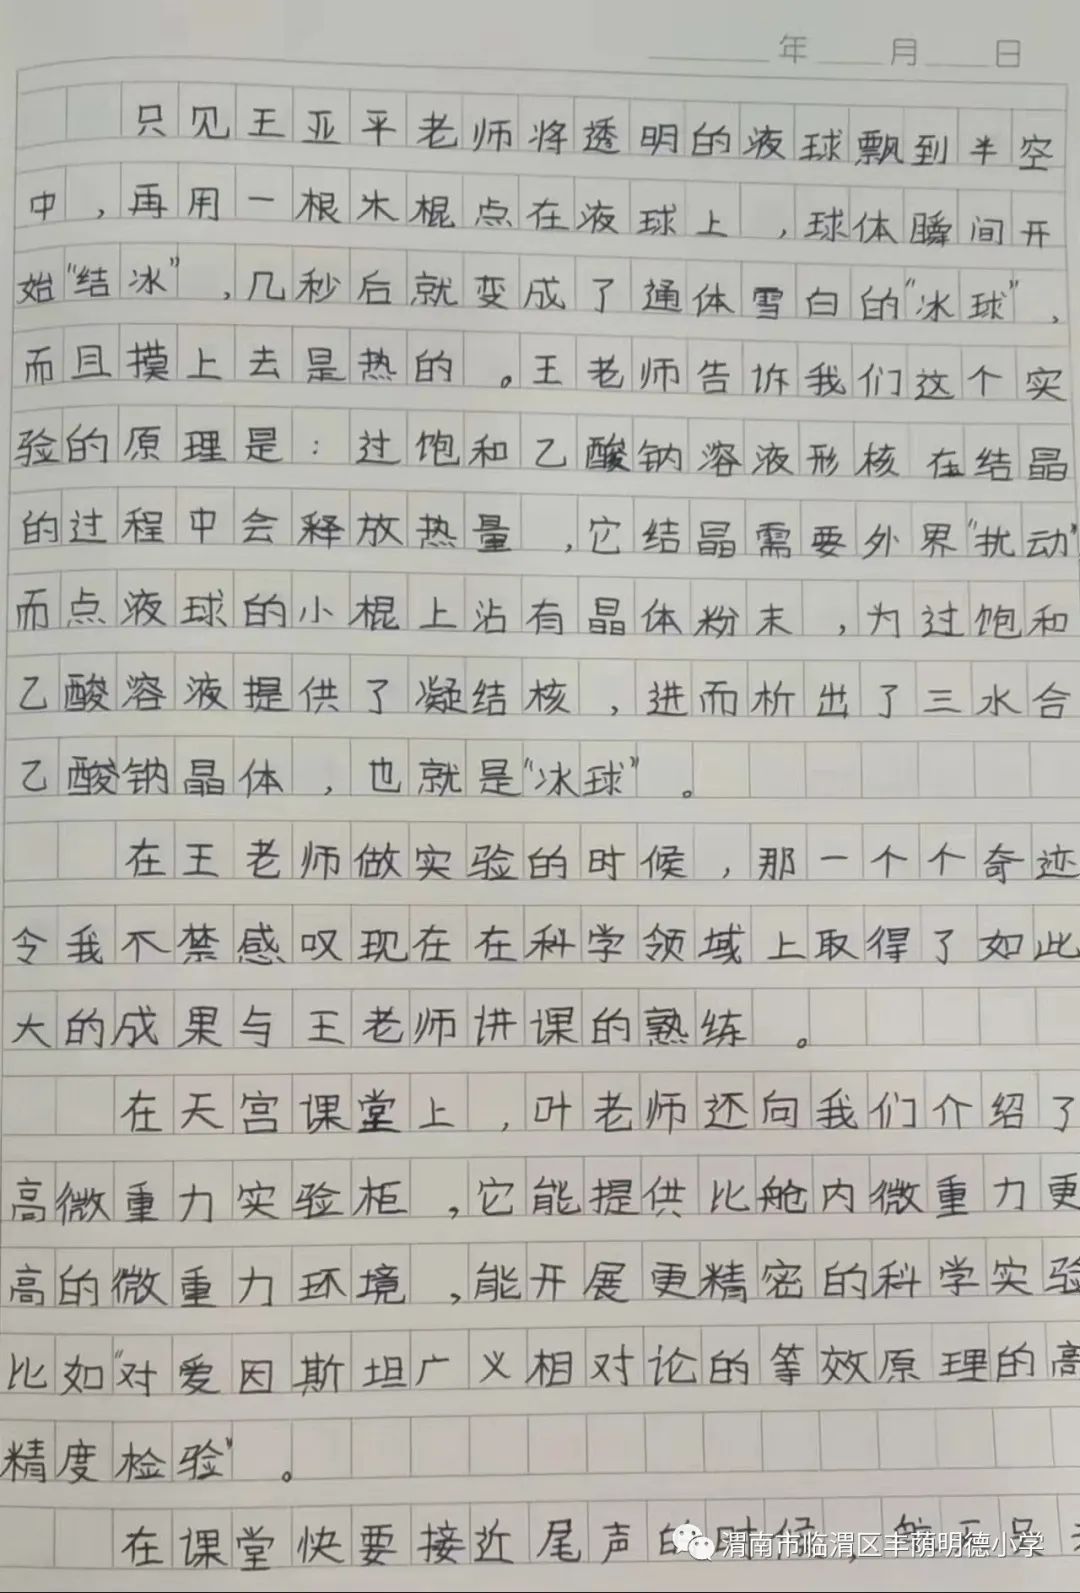 年 月 日
只见王亚平老师将透明的液球飘到半空
中,再用一根木棍点在液球上,球体瞬间开
始"结冰",几秒后就变成了通体雪白的"冰球",
而且摸上去是热的。王老师告诉我们这个实
验的原理是:过饱和乙酸钠溶液形核在结晶
的过程中会释放热量,它结晶需要外界"扰动"
而点液球的小棍上沾有晶体粉末,为过饱和
乙酸溶液提供了凝结核,进而析出了三水合
乙酸钠晶体,也就是"冰球"。
在王老师做实验的时候,那一个个奇迹
令我不禁感叹现在在科学领域上取得了如此
大的成果与王老师讲课的熟练。
在天宫课堂上,叶老师还向我们介绍了
高微重力实验柜,它能提供比舱内微重力更
高的微重力环境,能开展更精密的科学实验
比如"对爱因斯坦广义相对论的等效原理的高
精度检验"。
在课堂快要接近尾声的时候,
渭南市临渭区丰荫明德小学